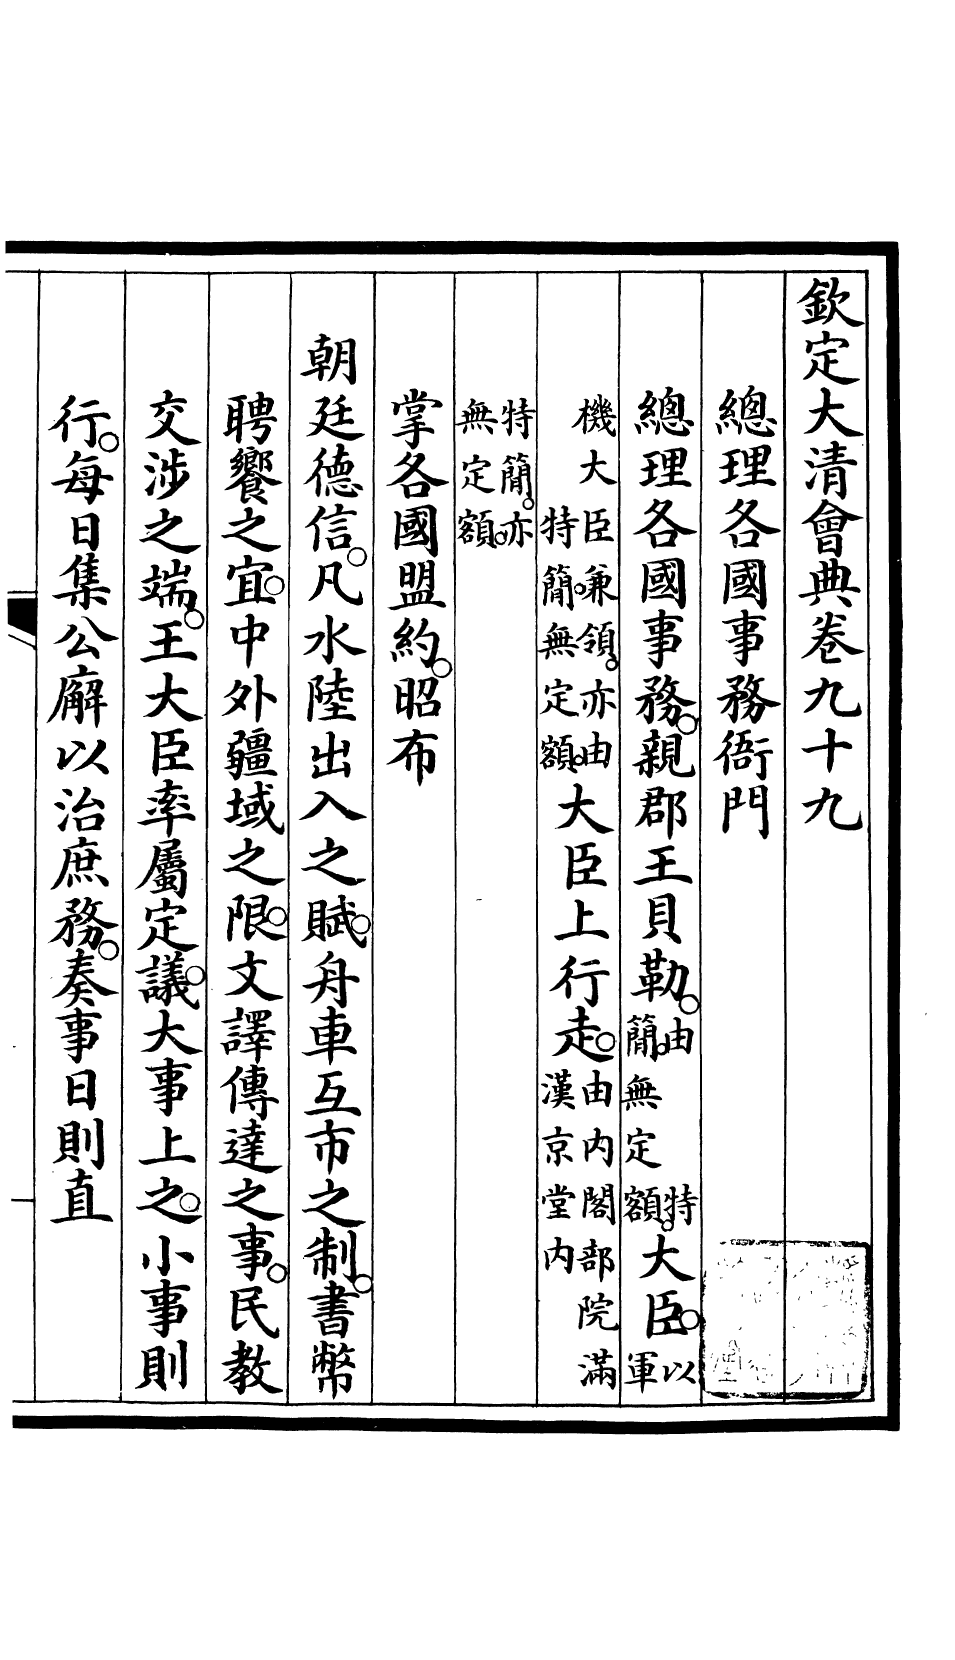 欽定大清會典卷九十九
總理各國事務衙門
總理各國事務。親郡王貝勒。由特簡。無定額。大臣。以軍
機大臣兼領。亦由特簡。無定額。大臣上行走。由內閣部院滿漢京堂內
特簡。亦無定額。
掌各國盟約。昭布
朝廷德信。凡水陸出入之賦。舟車互市之制。書幣
聘饗之宜。中外疆域之限。文譯傳達之事。民教
交涉之端。王大臣率屬定議。大事上之。小事則
行。每日集公廨以治庶務。奏事日則直